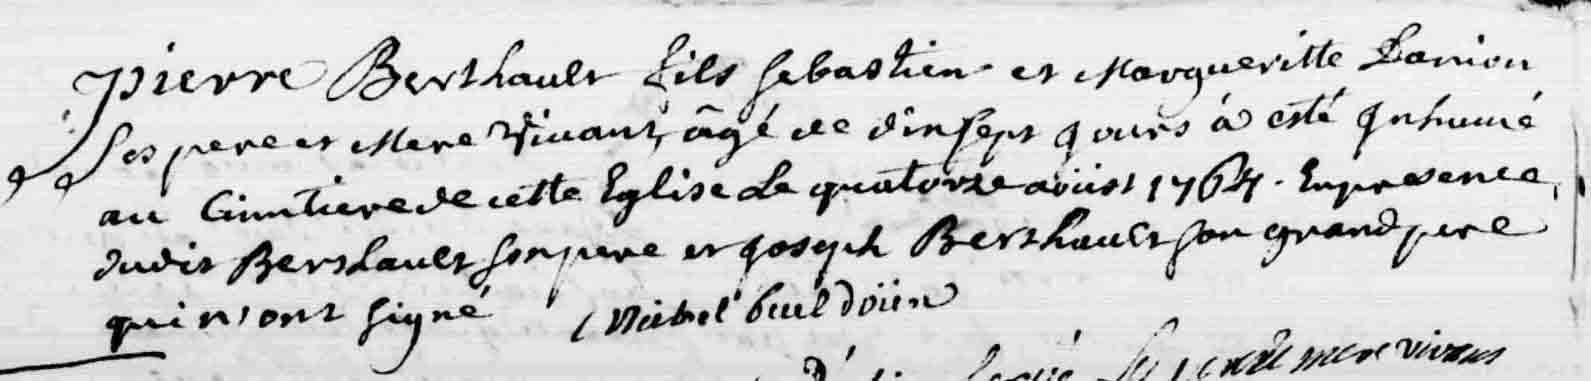 Pierre Berthault fils Sebastien et Margueritte Darrion
ses pere et Mere vivant, âgé de dinsept jours à esté inhumé
au Cimtiere de cette Eglise Le quatorze aoüst 1764. En presence
dudit Berthault son pere et joseph Berthault son grand pere
qui n'ont signé
mere vivans